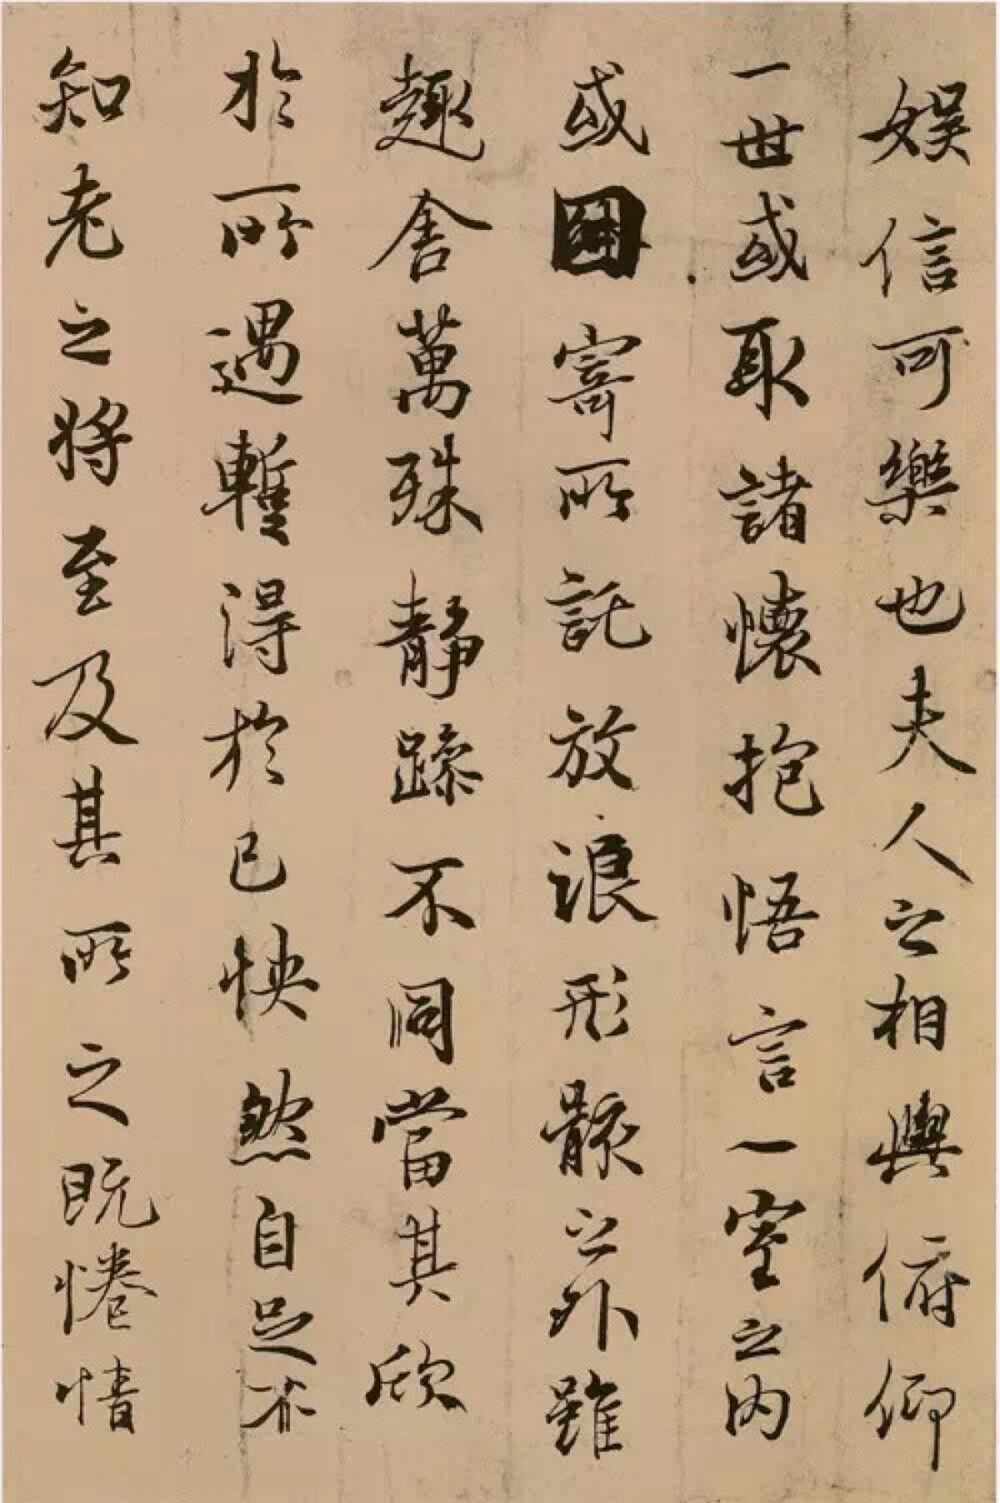 娛信可樂也夫人之相與俯仰
一世或取諸懷抱悟言一室之內
或因寄所託放浪形骸之外雖
趣舍萬殊靜躁不同當其欣
於所遇暫得於己怏然自足不
知老之將至及其所之既惓情